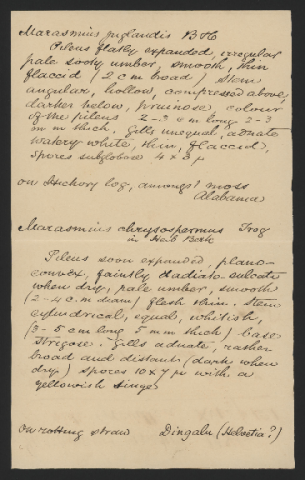 Marasmius juglandis B & C
Pileus flatly expanded, irregular
pale sooty umber, smooth, thin
flaccid (2 cm broad) Stem
angular, hollow, compressed above,
darker below, pruinose, colour
of the pileus 2-3 cm long 2-3
mm thick. Gills unequal, adnate
watery white, thin, flaccid,
Spores subglobose 4 x 3 µ
on hickory log, amongst moss
Alabama
Marasmius chrysospermus Trog
in Herb Berk
Pileus soon expanded, plano-
convex, faintly radiato-sulcate
when dry, pale umber, smooth
(2-4 cm diam) flesh thin. Stem
cylindrical, equal, whitish,
(3-5 cm long 5 mm thick) base
strigose. Gills adnate, rather
broad and distant (dark when
dry) spores 10 x 7 µ with a
yellowish tinge
on rotting straw Dingaln (Helvetia?)